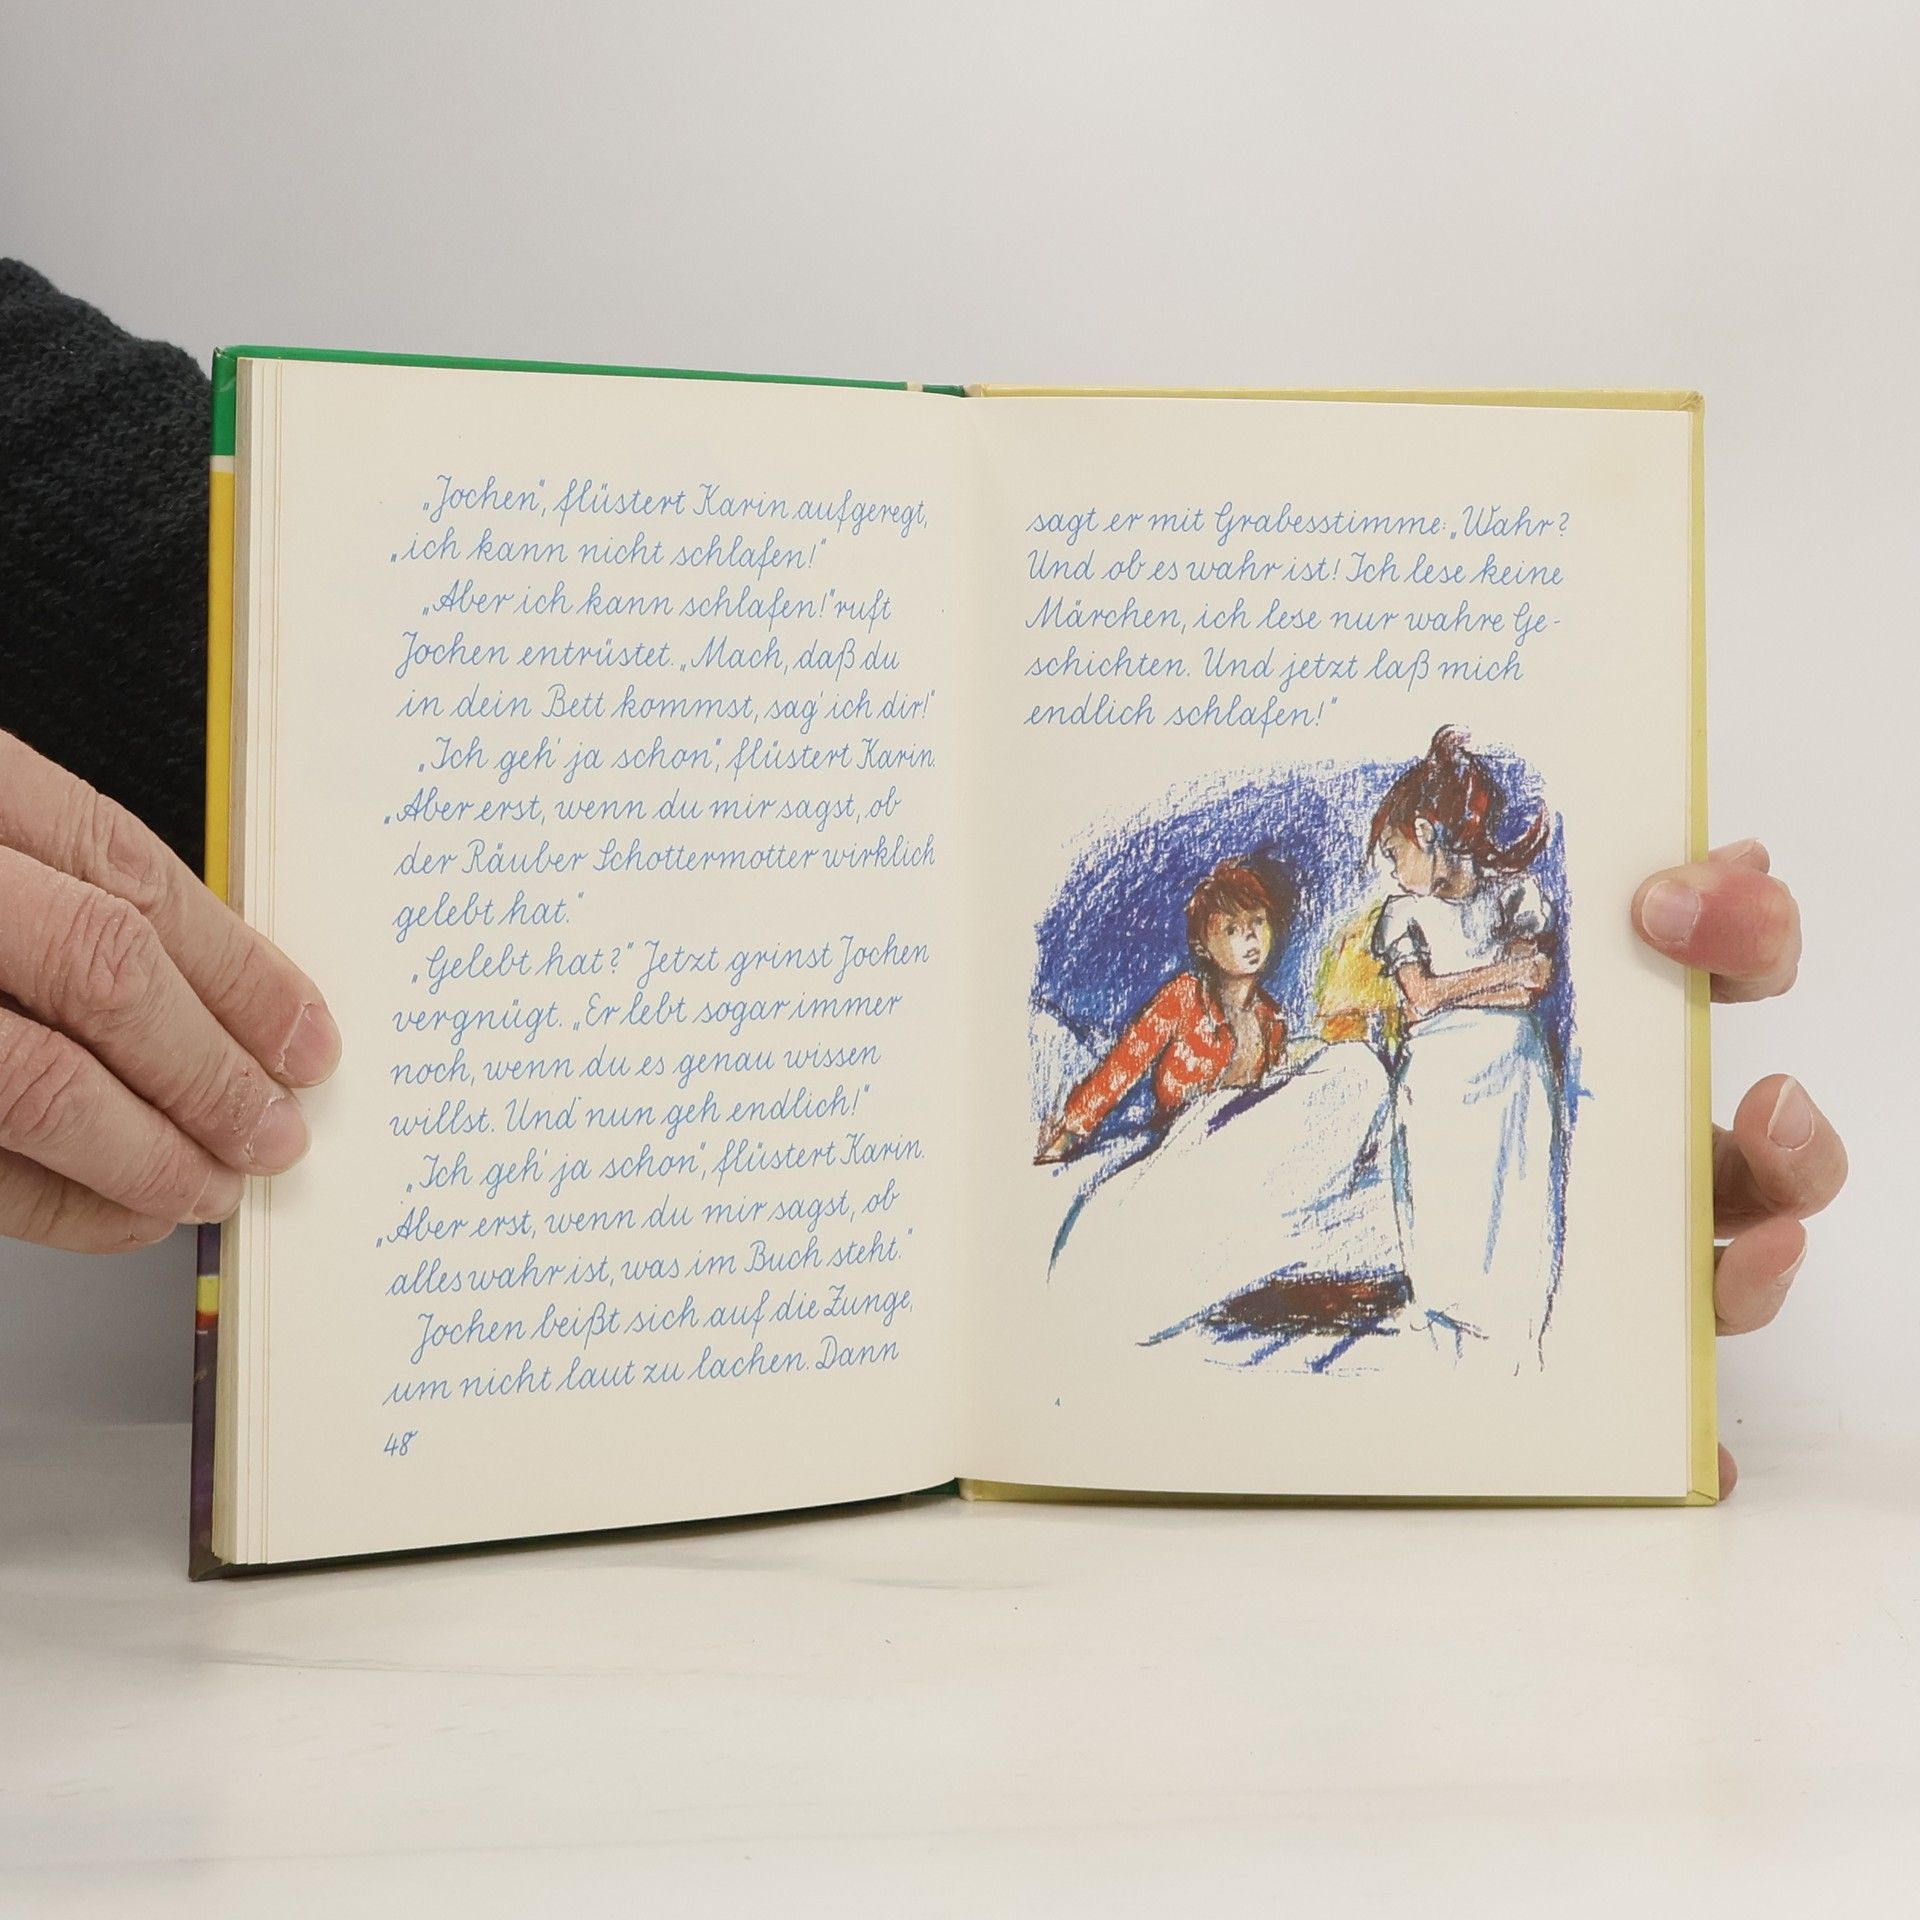 „Jochen“, flüstert Karin aufgeregt,
„ich kann nicht schlafen!“
„Aber ich kann schlafen!“ ruft
Jochen entrüstet. „Mach, daß du
in dein Bett kommst, sag' ich dir!“
„Ich geh' ja schon“, flüstert Karin.
„Aber erst, wenn du mir sagst, ob
der Räuber Schottermotter wirklich
gelebt hat.“
„Gelebt hat?“ Jetzt grinst Jochen
vergnügt. „Er lebt sogar immer
noch, wenn du es genau wissen
willst. Und nun geh endlich!“
„Ich geh' ja schon“, flüstert Karin.
„Aber erst, wenn du mir sagst, ob
alles wahr ist, was im Buch steht.“
Jochen beißt sich auf die Zunge,
um nicht laut zu lachen. Dann
48
sagt er mit Grabesstimme: „Wahr?
Und ob es wahr ist! Ich lese keine
Märchen, ich lese nur wahre Ge-
schichten. Und jetzt laß mich
endlich schlafen!“
4